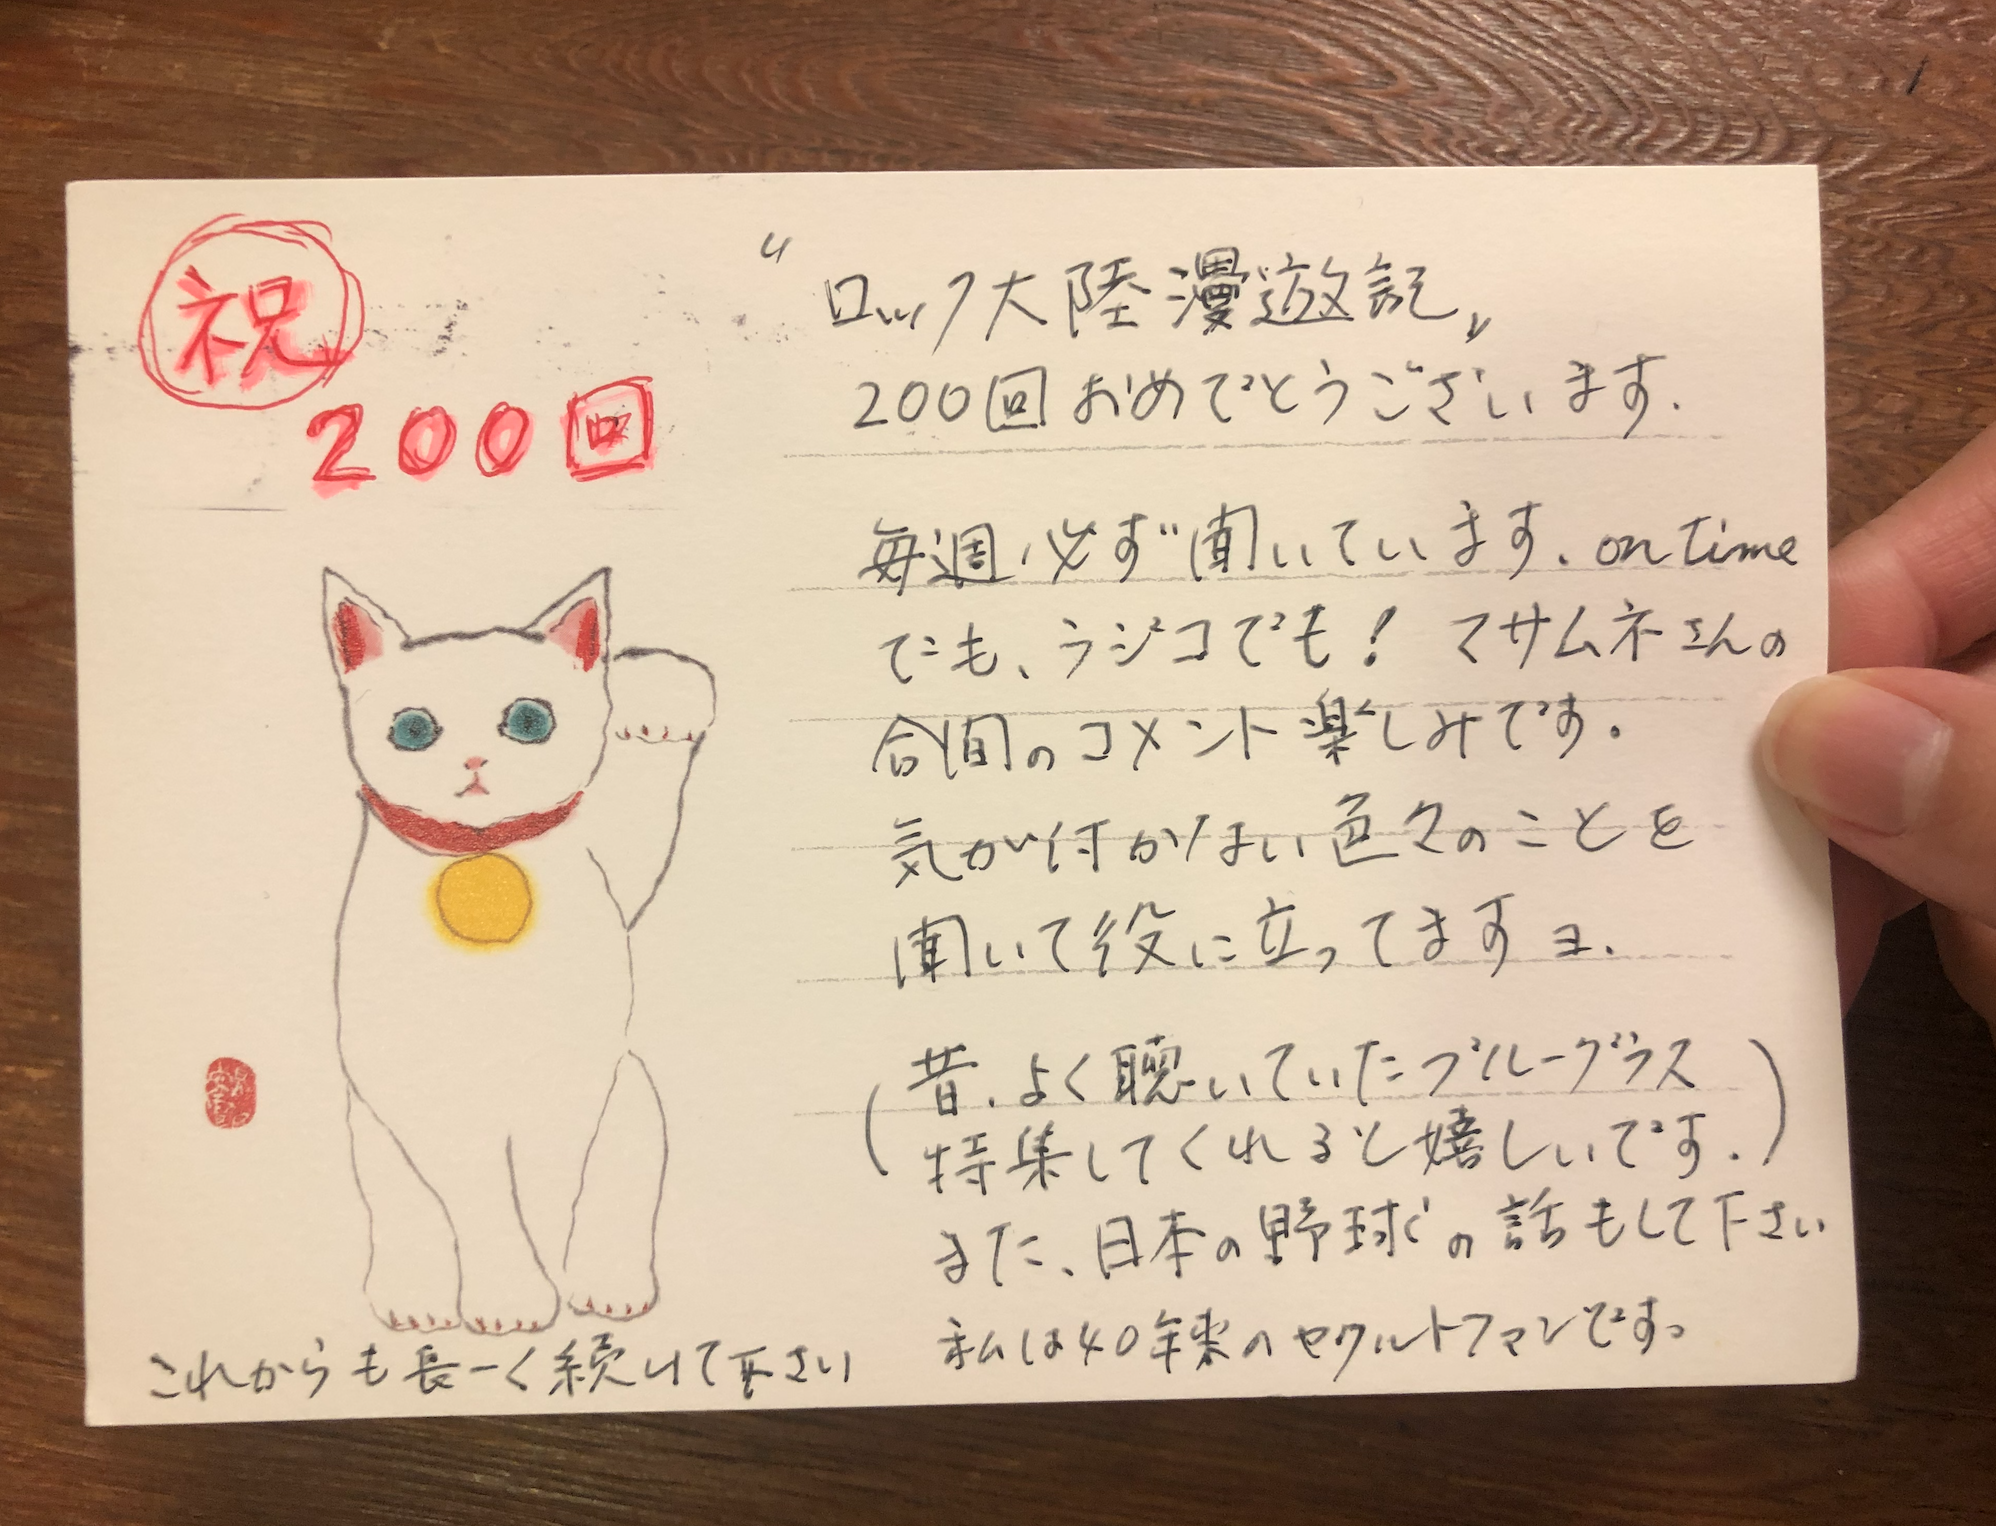 祝
200回
"ロック大陸漫遊記"
200回おめでとうございます.
毎週必ず聞いています. on time
でも、ラジコでも! マサムネさんの
合間のコメント楽しみです.
気が付かない色々のことを
聞いて役に立ってますヨ.
(昔、よく聴いていたブルーグラス
特集してくれると嬉しいです.)
また、日本の野球の話もして下さい
私は40年来のヤクルトファンです。
これからも長ーく続けて下さい